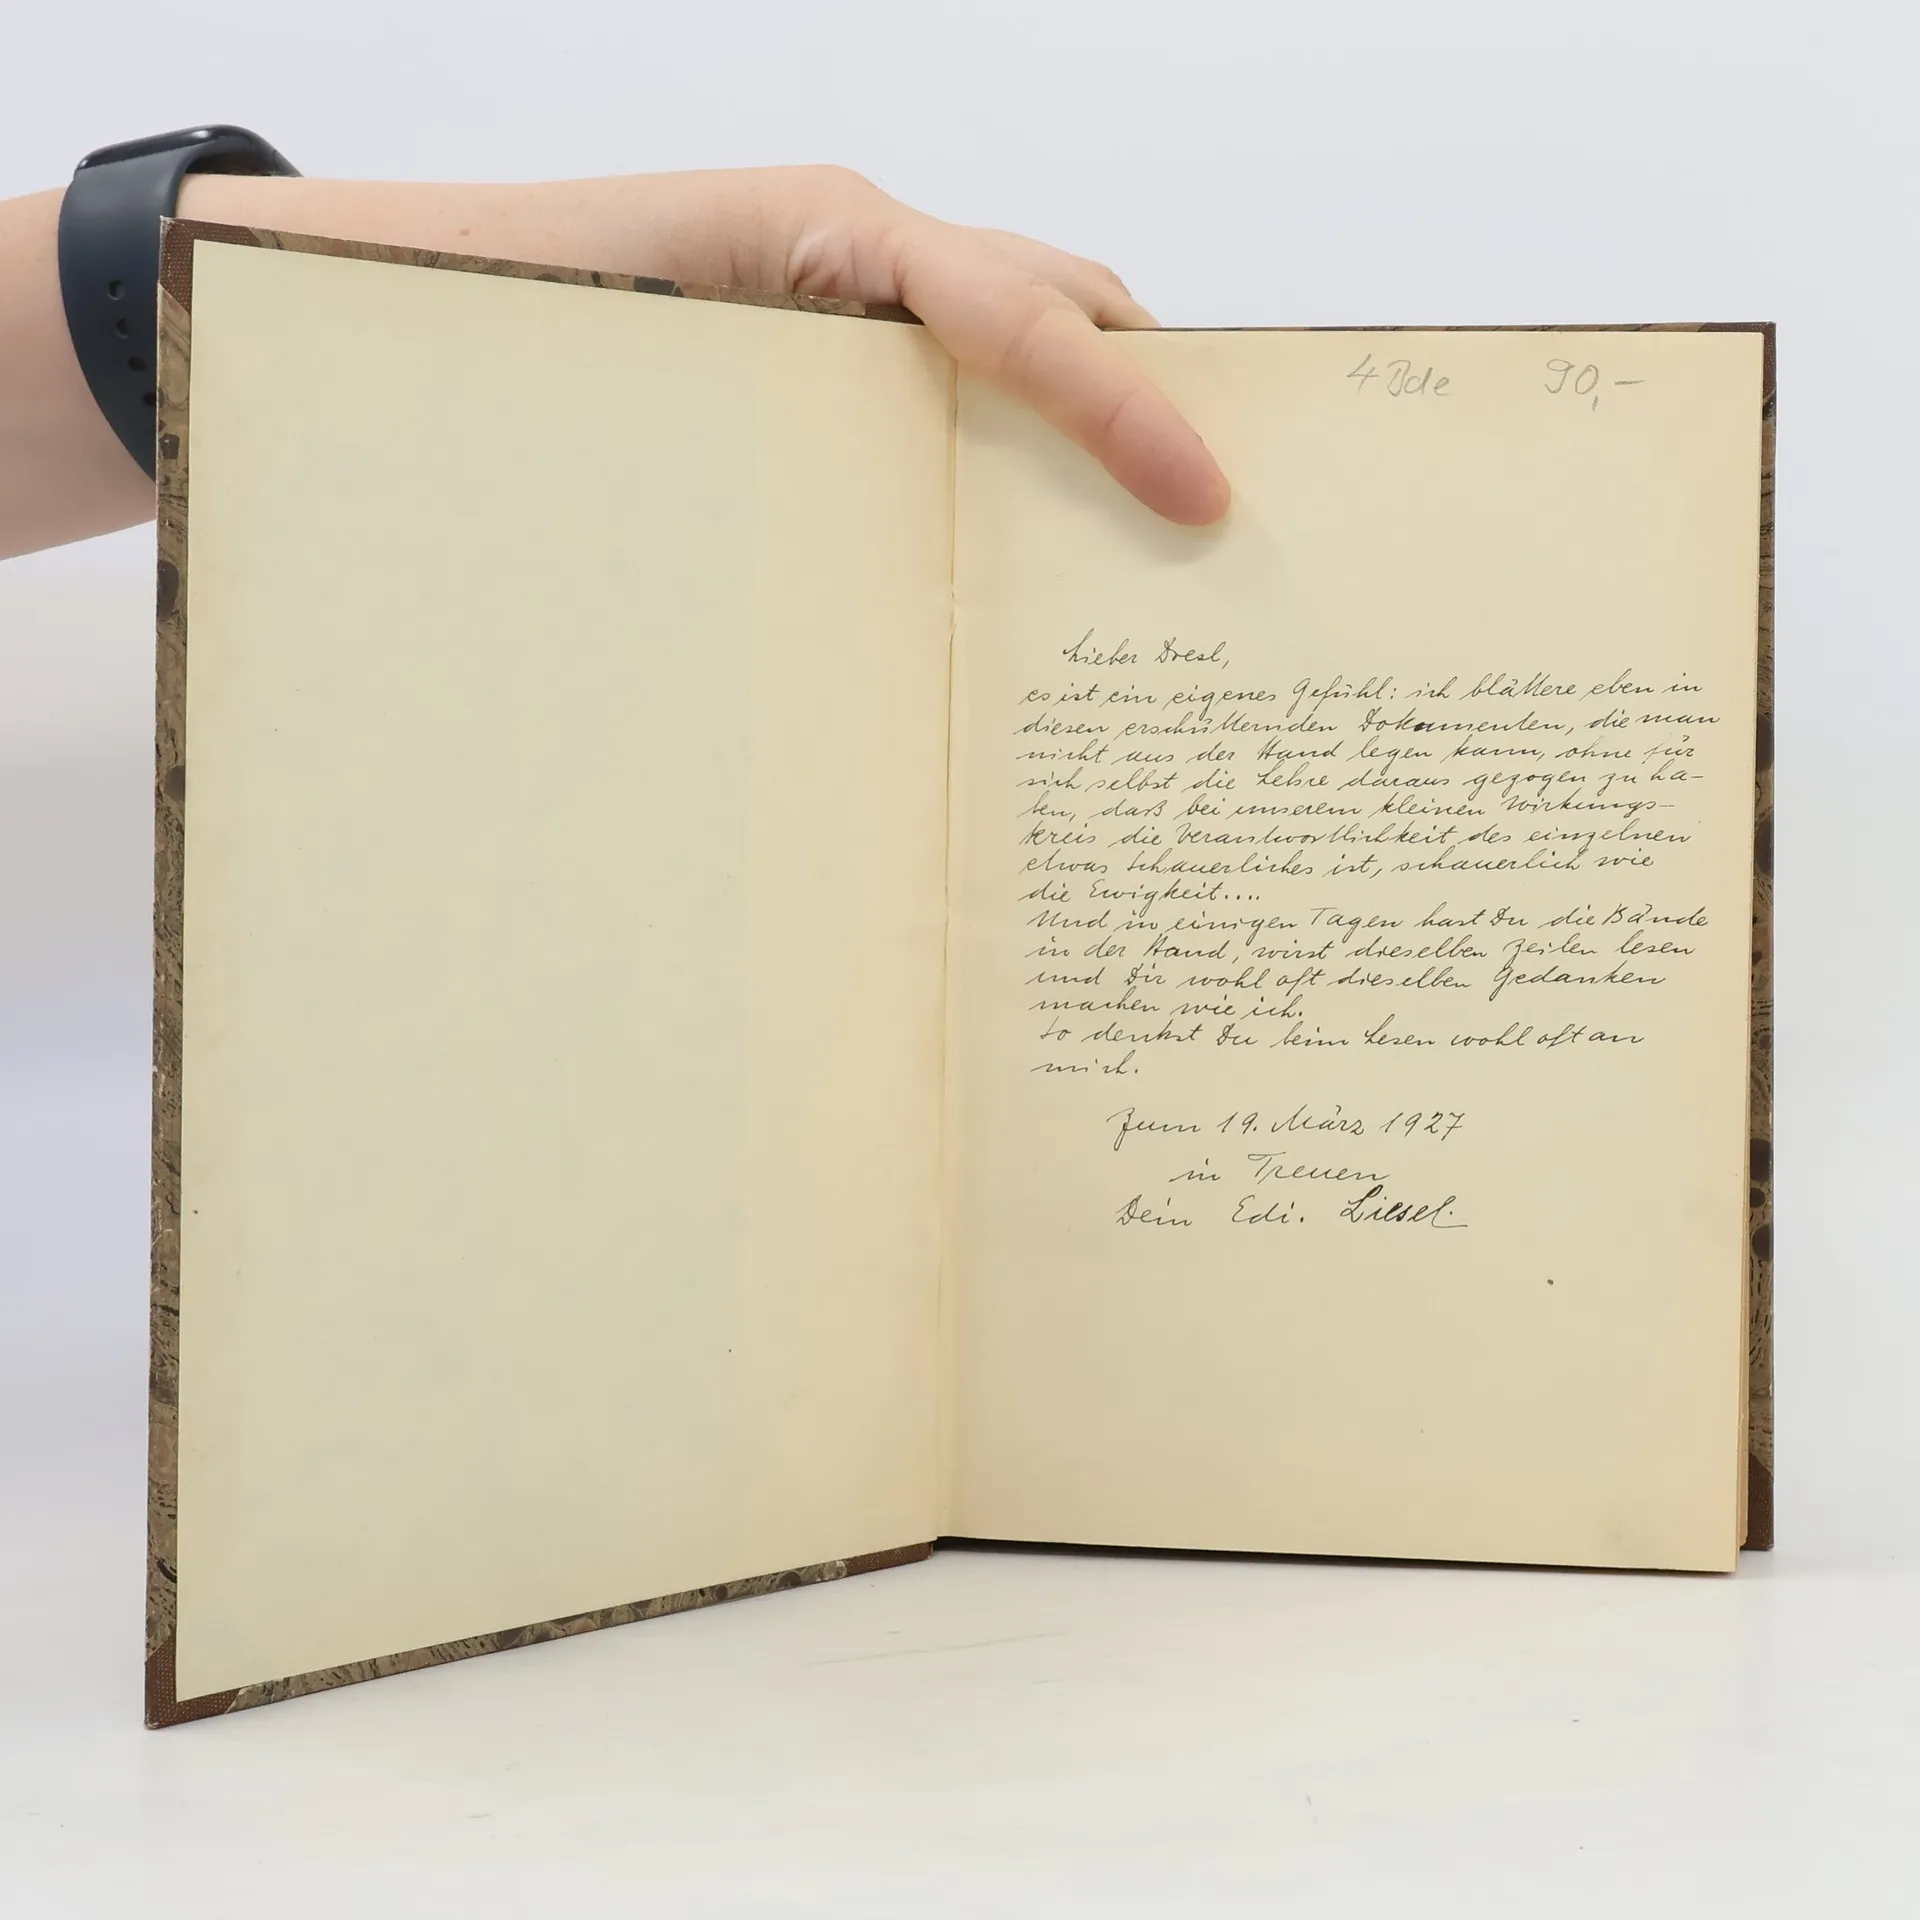 4 Bde 90,-
Lieber Dresl,
es ist ein eigenes Gefühl: ich blättere eben in
diesen erschütternden Dokumenten, die man
nicht aus der Hand legen kann, ohne für
sich selbst die Lehre daraus gezogen zu ha-
ben, daß bei unserem kleinen Wirkungs-
kreis die Verantwortlichkeit des einzelnen
etwas Schauerliches ist, schauerlich wie
die Ewigkeit....
Und in einigen Tagen hast Du die Bände
in der Hand, wirst dieselben Zeilen lesen
und Dir wohl oft dieselben Gedanken
machen wie ich.
So denkst Du beim Lesen wohl oft an
mich.
Zum 19. März 1927
in Treuen
Dein Edi. Liesel.